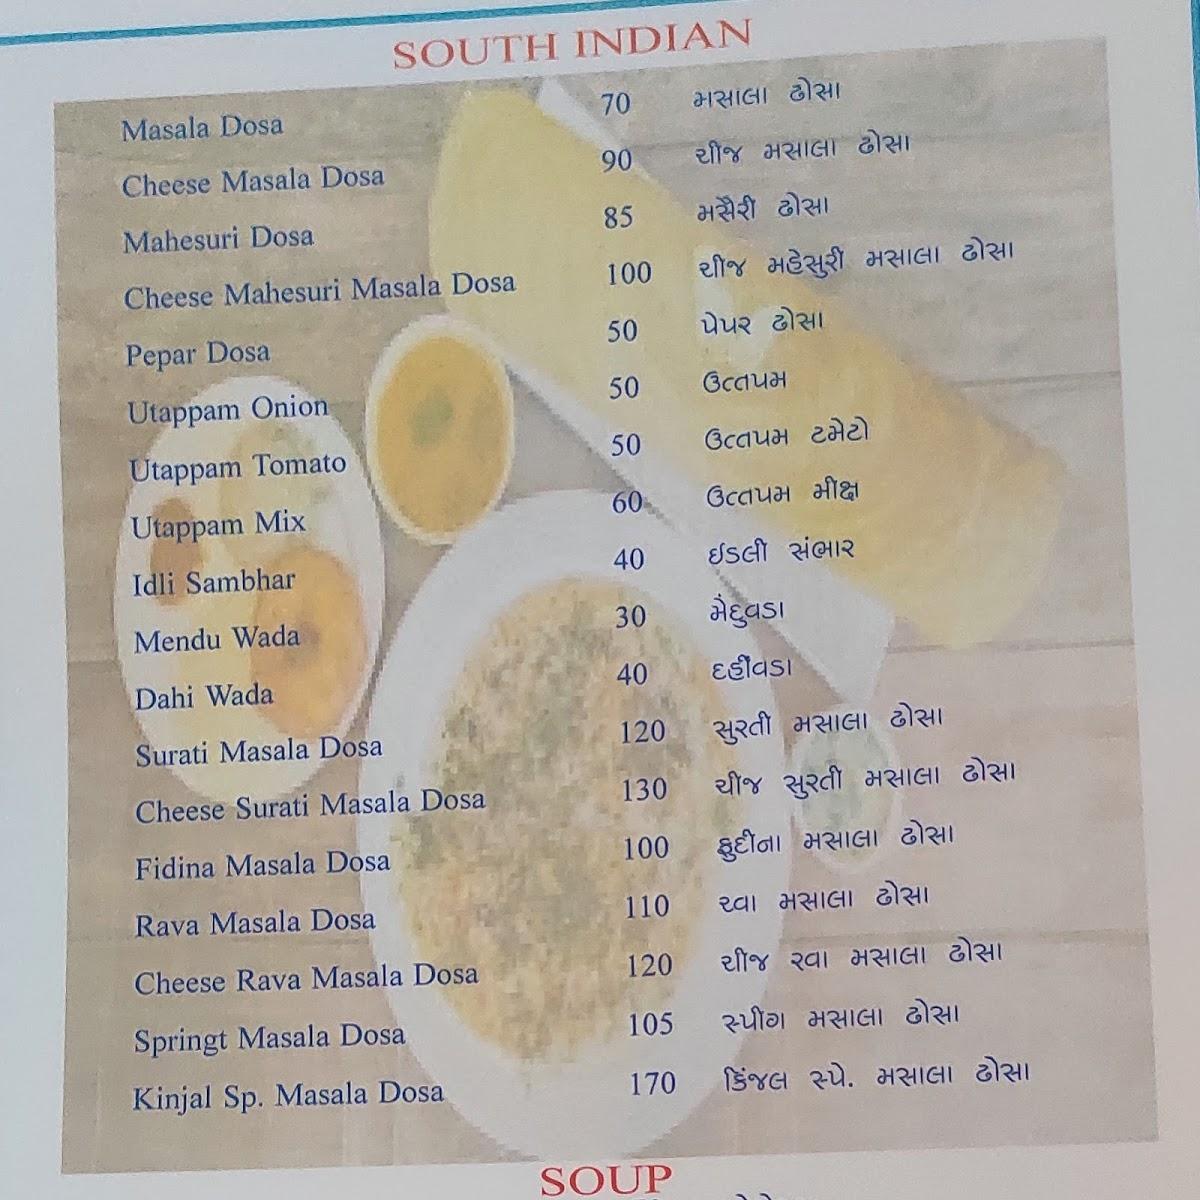 SOUTH INDIAN
Masala Dosa 70 મસાલા ઢોસા
Cheese Masala Dosa 90 ચીજ મસાલા ઢોસા
Mahesuri Dosa 85 મસૈરી ઢોસા
Cheese Mahesuri Masala Dosa 100 ચીજ મહેસુરી મસાલા ઢોસા
Pepar Dosa 50 પેપર ઢોસા
Utappam Onion 50 ઉત્તપમ
Utappam Tomato 50 ઉત્તપમ ટમેટો
Utappam Mix 60 ઉત્તપમ મીક્ષ
Idli Sambhar 40 ઈડલી સંભાર
Mendu Wada 30 મેંદુવડા
Dahi Wada 40 દહીંવડા
Surati Masala Dosa 120 સુરતી મસાલા ઢોસા
Cheese Surati Masala Dosa 130 ચીજ સુરતી મસાલા ઢોસા
Fidina Masala Dosa 100 ફુદીના મસાલા ઢોસા
Rava Masala Dosa 110 રવા મસાલા ઢોસા
Cheese Rava Masala Dosa 120 ચીજ રવા મસાલા ઢોસા
Springt Masala Dosa 105 સ્પીંગ મસાલા ઢોસા
Kinjal Sp. Masala Dosa 170 કિંજલ સ્પે. મસાલા ઢોસા
SOUP